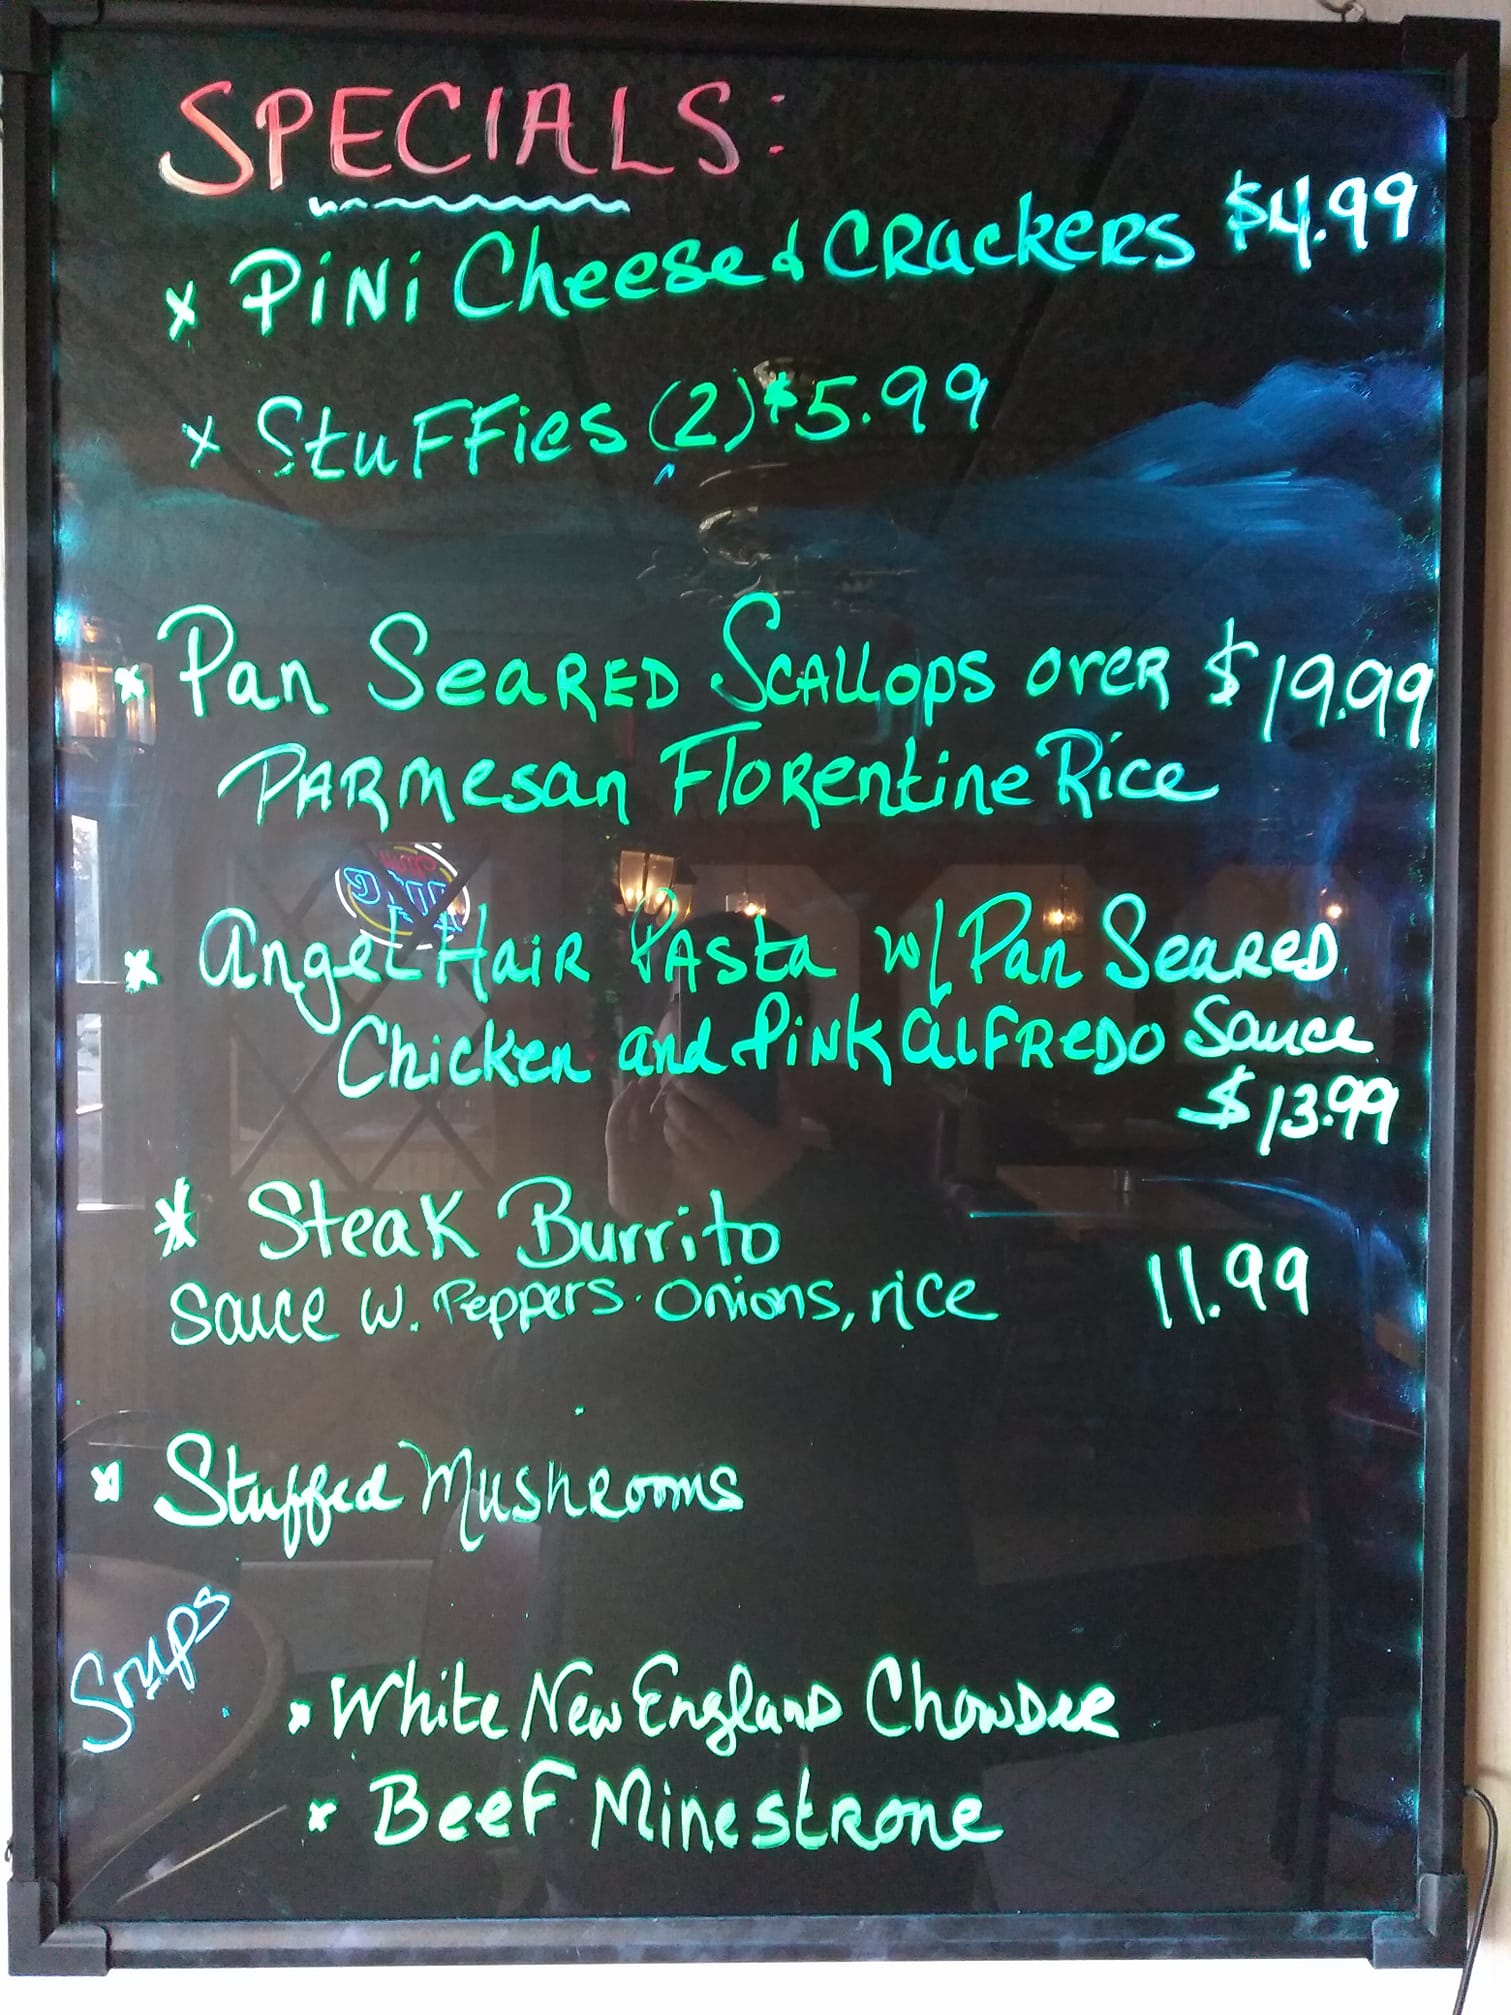 SPECIALS:
x PiNi Cheese & CRackeRs $4.99
x StuFFies (2) $5.99
* Pan SeaRED SCALLopS over $19.99
PARmesan FloRentine Rice
* Angel HaiR PAsta w/ Pan SeaReD
Chicken and PiNK AlFReDO Sauce
$13.99
* Steak Burrito
Sauce w. Peppers. Onions, rice 11.99
* Stuffed MushRooms
Soups
* White New EnglanD ChowDer
* BeeF MinestRone